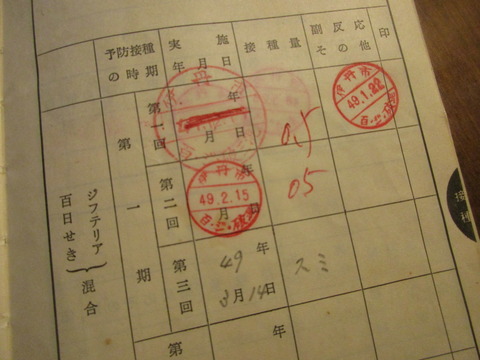 予防接種の時期
実施年月日
接種量
副反応その他
印
ジフテリア
百日せき
混合
第一期
第一回
年
月
日
0.5
伊丹市
49.1.22
第二回
伊丹市
49.2.15
月
日
05
第三回
49年
3月14日
スミ
第
年
接種